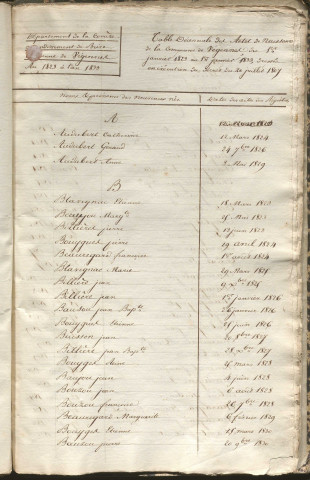 Département de la Corrèze
Arrondissement de Brive
Commune de Végennes
An 1823 à l'an 1830
Table Décennale des Actes de Naissances
de la Commune de Végennes, du 1er
janvier 1823 au 1er janvier 1830, dressée
en exécution du Décret du 20 juillet 1807
Noms et prénoms des Nouveaux nés
Dates des actes des Registres
A
Audubert Catherine 12 Mars 1824
Audubert Géraud 24 7bre 1826
Audubert Anne 2 Mai 1829
B
Blavignac Etienne 18 Mars 1823
Marg.te 15 Mai 1823
Pierre 13 juin 1823
Bouygues pierre 19 avril 1824
Beauregard françoise 1er avril 1824
Blavignac Marie 29 Mars 1825
Billière jean 9 Xbre 1825
Billière jean 1er janvier 1826
Bardou jean Bap.te 26 janvier 1826
Bouygues Etienne 18 juin 1826
Buisson jean 1827
Billière jean Bap.te 28 Xbre 1827
Bouygue Anne 15 Mars 1828
jean 4 juin 1828
Bouzou jean 6 août 1828
Bouzou françoise 26 7bre 1828
Beauregard Marguerite 6 février 1829
Bouygue Etienne 15 Mars 1830
jeanne 20 9bre 1830